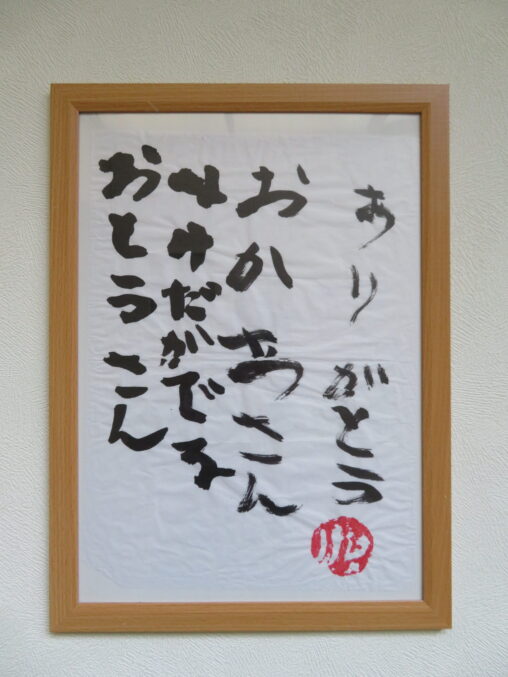 ありがとう
おかあさん
なみだがでる
おとうさん